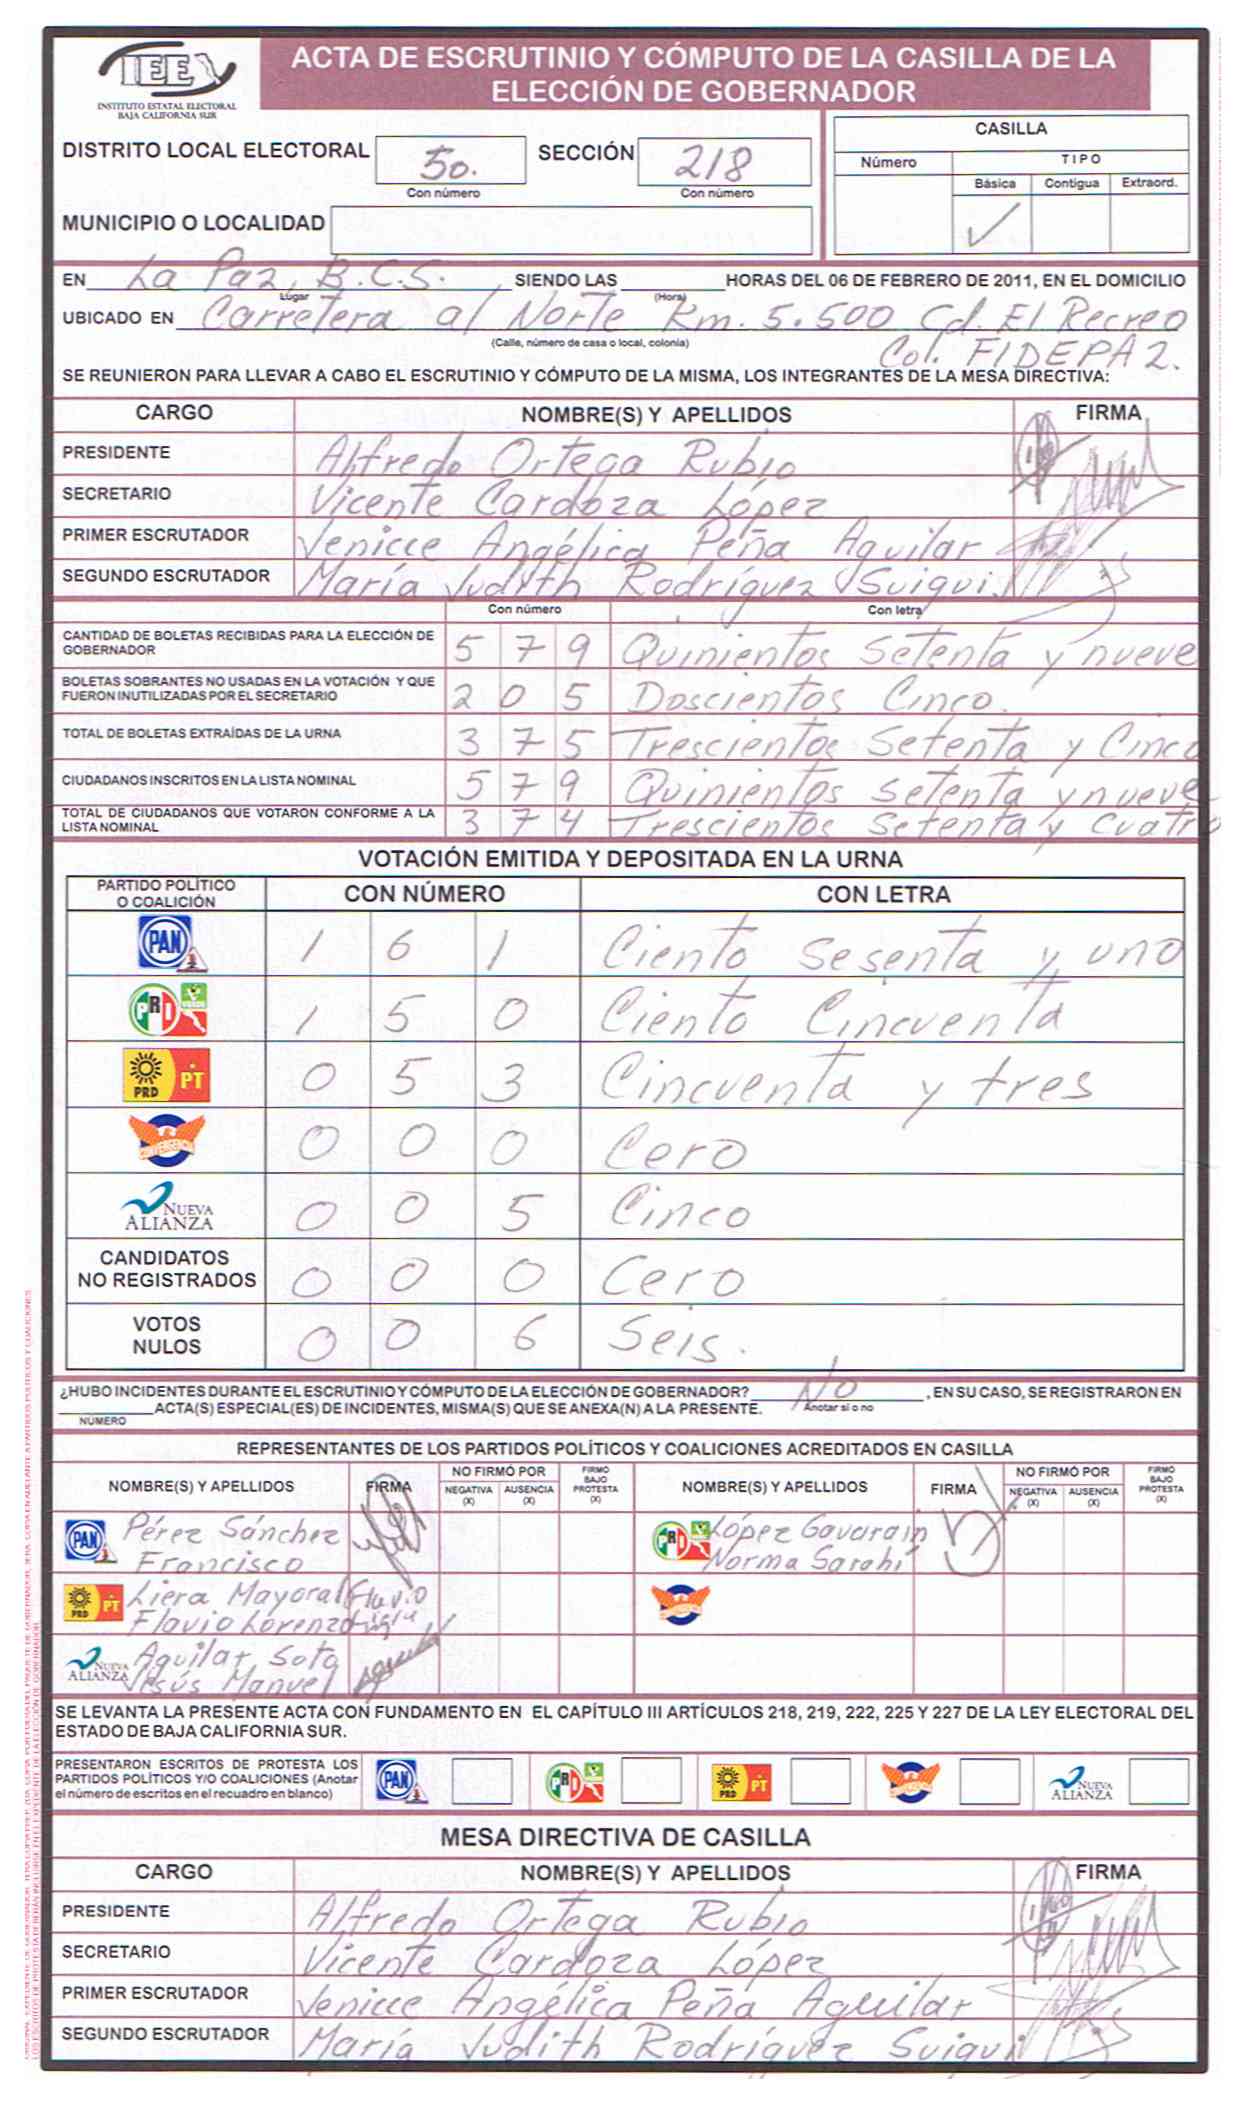 IEE
INSTITUTO ESTATAL ELECTORAL
BAJA CALIFORNIA SUR
ACTA DE ESCRUTINIO Y CÓMPUTO DE LA CASILLA DE LA
ELECCIÓN DE GOBERNADOR
DISTRITO LOCAL ELECTORAL 50. SECCIÓN 218
Con número Con número
CASILLA
Número TIPO
Básica Contigua Extraord.
✓
MUNICIPIO O LOCALIDAD
EN La Paz, B.C.S. SIENDO LAS HORAS DEL 06 DE FEBRERO DE 2011, EN EL DOMICILIO
Lugar (Hora)
UBICADO EN Carretera al Norte Km. 5.500 Cd. El Recreo
(Calle, número de casa o local, colonia)
Col. FIDEPAZ.
SE REUNIERON PARA LLEVAR A CABO EL ESCRUTINIO Y CÓMPUTO DE LA MISMA, LOS INTEGRANTES DE LA MESA DIRECTIVA:
CARGO NOMBRE(S) Y APELLIDOS FIRMA
PRESIDENTE Alfredo Ortega Rubio
SECRETARIO Vicente Cardoza López
PRIMER ESCRUTADOR Venicce Angélica Peña Aguilar
SEGUNDO ESCRUTADOR María Judith Rodríguez Suiqui
Con número Con letra
CANTIDAD DE BOLETAS RECIBIDAS PARA LA ELECCIÓN DE
GOBERNADOR 5 7 9 Quinientos setenta y nueve
BOLETAS SOBRANTES NO USADAS EN LA VOTACIÓN Y QUE
FUERON INUTILIZADAS POR EL SECRETARIO 2 0 5 Doscientos Cinco.
TOTAL DE BOLETAS EXTRAÍDAS DE LA URNA 3 7 5 Trescientos setenta y Cinco
CIUDADANOS INSCRITOS EN LA LISTA NOMINAL 5 7 9 Quinientos setenta y nueve
TOTAL DE CIUDADANOS QUE VOTARON CONFORME A LA
LISTA NOMINAL 3 7 4 Trescientos setenta y cuatro
VOTACIÓN EMITIDA Y DEPOSITADA EN LA URNA
PARTIDO POLÍTICO
O COALICIÓN CON NÚMERO CON LETRA
PAN 1 6 1 Ciento sesenta y uno
PRD VERDE 1 5 0 Ciento Cincuenta
PRD PT 0 5 3 Cincuenta y tres
CONVERGENCIA 0 0 0 Cero
NUEVA ALIANZA 0 0 5 Cinco
CANDIDATOS
NO REGISTRADOS 0 0 0 Cero
VOTOS
NULOS 0 0 6 Seis.
¿HUBO INCIDENTES DURANTE EL ESCRUTINIO Y CÓMPUTO DE LA ELECCIÓN DE GOBERNADOR? No, EN SU CASO, SE REGISTRARON EN
ACTA(S) ESPECIAL(ES) DE INCIDENTES, MISMA(S) QUE SE ANEXA(N) A LA PRESENTE. Anotar sí o no
NÚMERO
REPRESENTANTES DE LOS PARTIDOS POLÍTICOS Y COALICIONES ACREDITADOS EN CASILLA
NOMBRE(S) Y APELLIDOS FIRMA NO FIRMÓ POR NEGATIVA (X) AUSENCIA (X) FIRMÓ BAJO PROTESTA (X) NOMBRE(S) Y APELLIDOS FIRMA NO FIRMÓ POR NEGATIVA (X) AUSENCIA (X) FIRMÓ BAJO PROTESTA (X)
PAN Pérez Sánchez
Francisco
PRD López Gavarain
Norma Sarahí
PRD PT Liera Mayoral Flavio
Flavio Lorenzo
NUEVA ALIANZA Aguilar Soto
Jesús Manuel
SE LEVANTA LA PRESENTE ACTA CON FUNDAMENTO EN EL CAPÍTULO III ARTÍCULOS 218, 219, 222, 225 Y 227 DE LA LEY ELECTORAL DEL
ESTADO DE BAJA CALIFORNIA SUR.
PRESENTARON ESCRITOS DE PROTESTA LOS
PARTIDOS POLÍTICOS Y/O COALICIONES (Anotar
el número de escritos en el recuadro en blanco)
PAN PRD PRD PT NUEVA ALIANZA
MESA DIRECTIVA DE CASILLA
CARGO NOMBRE(S) Y APELLIDOS FIRMA
PRESIDENTE Alfredo Ortega Rubio
SECRETARIO Vicente Cardoza López
PRIMER ESCRUTADOR Venicce Angélica Peña Aguilar
SEGUNDO ESCRUTADOR María Judith Rodríguez Suiqui